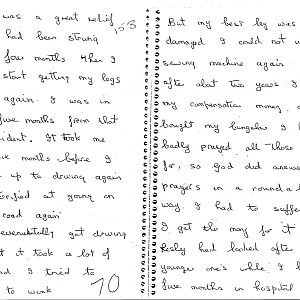 was a great relief
153
had been strung
four months when I
start getting my legs
again. I was in
five months from that
ident. It took me
months before I
up to driving again
at going on
road again
get driving
it took a lot of
I tried to
to work
70
But my best leg was
damaged I could not u
sewing machine again.
after about two years I
my compensation money.
bought my bungalow I h
badly prayed all those
for, so God did answer
prayers in a round a b
way. I had to suffe
I get the money for it
Lesley had looked after
younger one's while I h
five months in hospital